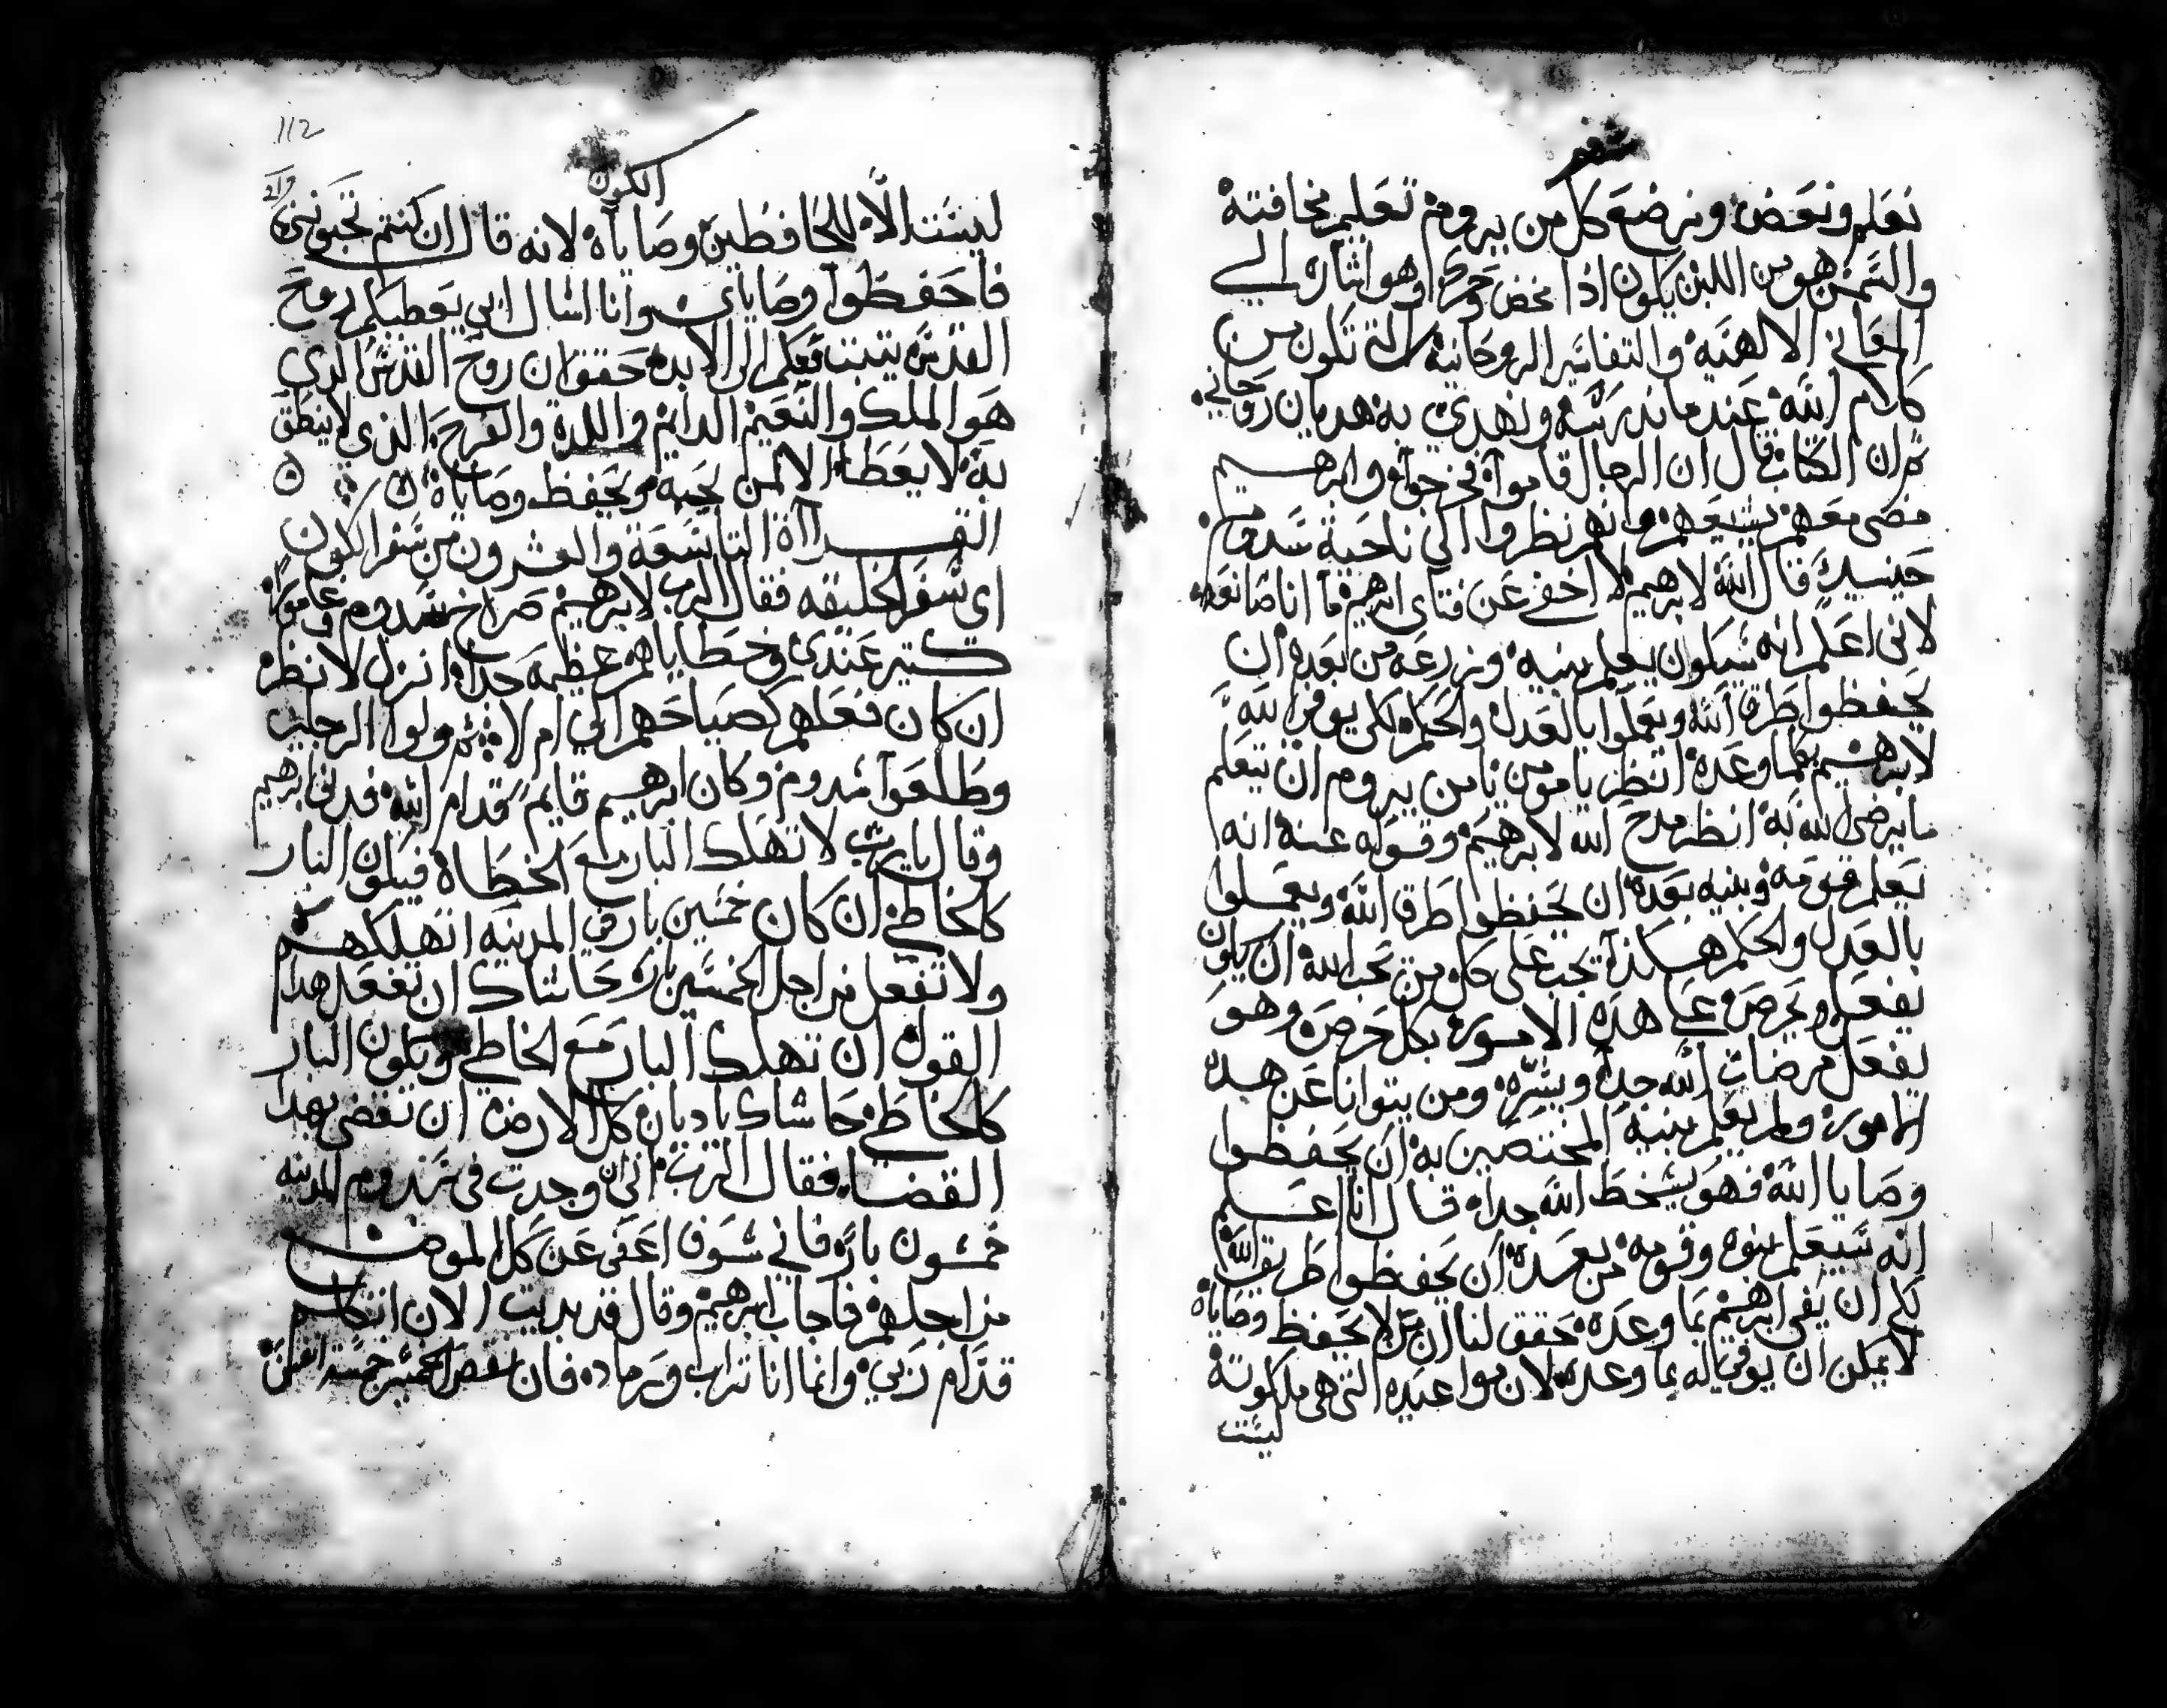 سفر
نعلم ونعض ونرضع كل من يروم تعليم مخافته
والسمن هو من اللبن يكون اذا مخض وحرك وهو اشاره الي
المعاني الالهيه والتفاسير الروحانيه التي تكون من
كلام الله عندما ندرسه ونهدي به هديان روحاني
ثم ان الكتاب قال ان الرجال قاموا فخرجوا وابرهيم
مضى معهم يشيعهم وانهم نظروا الي ناحية سدوم
حينيد قال الله لابرهيم لا اخفي عن فتاي ابرهيم ما انا صانعه
لانى اعلم انه سيكون يعلم بنيه وزرعه من بعده ان
يحفظوا طرق الله ويعملوا بالعدل والحكم لكي يوفي الله
لابرهيم بكلما وعده انظر يا مومن يا من يروم ان يتعلم
ما يرضى الله به انظر مدح الله لابرهيم وقوله عنه انه
يعلم قومه وبنيه بعده ان يحفظوا طرق الله ويعملوا
بالعدل والحكم هكذا تجب على كل من يحب الله ان يكون
يفعل ويحرص على هذه الامور بكل حرص وهو
يفعل مرضات الله جدا ويسره ومن يتوانا عن هده
الامور ولم يعلم بنيه المختصين به ان يحفظوا
وصايا الله فهو يسخط الله جدا قال انا اعلم
انه سيعلم بنوه وقومه من بعده ان يحفظوا طريق الله
لكي ان يفي ابرهيم بما وعده حقق لنا ان من لا يحفظ وصاياه
لا يمكن ان يوفي له بما وعده لان مواعيده التي هي ملكوته
ليست
112
الكون
ليست الا للحافطين وصاياه لانه قال ان كنتم تحبونني
فاحفظوا وصاياي وانا اسال ابي يعطيكم روح
القدس يثبت معكم الى الابد حقق ان روح القدس الدي
هو الملك والنعيم الدايم واللدة والفرح الذي لا ينطق
به لا يعطا الا لمن يحبه ويحفظ وصاياه
القراآة التاسعة والعشرون من سفر الكون
اى سفر الخليقه فقال الرب لابرهيم صراخ سدوم وعامورا
كتير عندي وخطاياهم عظيمه جدا انزل لانظر
ان كان فعلهم كصياحهم الي ام لا ثم ولوا الرجلين
وطلعوا سدوم وكان ابرهيم قايم قدام الله فدنى ابرهيم
وقال يا رب لا تهلك البار مع الخطاه فيكون البار
كالخاطي ان كان خمسين بار في المدينه اتهلكهم
ولا تفعل من اجل الخمسين بار حاشاك ان تفعل هدا
القول ان تهلك البار مع الخاطي ويكون البار
كالخاطي حاشاك يا ديان كل الارض ان تقضى بهدا
القضا فقال الرب اني ان وجدت في سدوم المدينه
خمسون بار فاني سوف اعفى عن كل الموضع
من اجلهم فاجاب ابرهيم وقال قد بديت الان اتكلم
قدام ربي وانما انا تراب ورماد فان نقص الخمسين خمسه